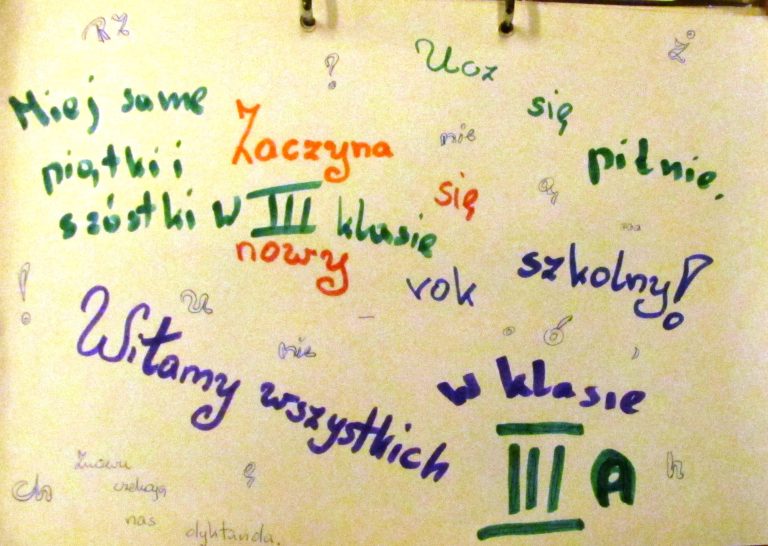 RZ
!
Ucz
się
pilnie.
Ż
Miej same
piątki i
szóstki w III klasie
Zaczyna
się
nowy
rok
szkolny!
nie
ą
!
u
nie
ó
Witamy wszystkich
w klasie
III A
Znowu
czekają
nas
dyktanda.
ch
ę
h